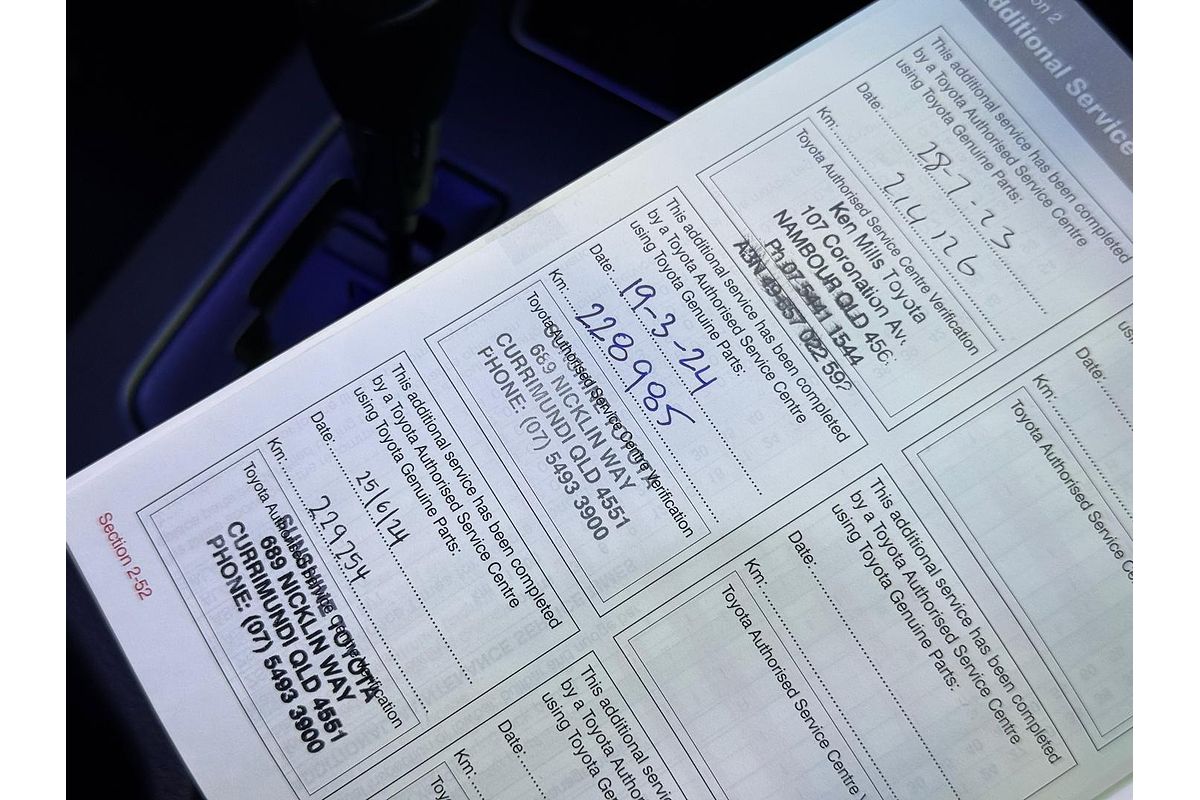 Additional Service
This additional service has been completed
by a Toyota Authorised Service Centre
using Toyota Genuine Parts:
Date: 28-7-23
Km: 214126
Toyota Authorised Service Centre Verification
Ken Mills Toyota
107 Coronation Av.
NAMBOUR QLD 456
Ph 07 5441 1544
ABN 49 857 022 592
This additional service has been completed
by a Toyota Authorised Service Centre
using Toyota Genuine Parts:
Date: 19-3-24
Km: 228985
Toyota Authorised Service Centre Verification
SUNSHINE TOYOTA
689 NICKLIN WAY
CURRIMUNDI QLD 4551
PHONE: (07) 5493 3900
This additional service has been completed
by a Toyota Authorised Service Centre
using Toyota Genuine Parts:
Date: 25/6/24
Km: 229254
Toyota Authorised Service Centre Verification
SUNSHINE TOYOTA
689 NICKLIN WAY
CURRIMUNDI QLD 4551
PHONE: (07) 5493 3900
Date:
Km:
Toyota Authorised Service
This additional service has been completed
by a Toyota Authorised Service Centre
using Toyota Genuine Parts:
Date:
Km:
Toyota Authorised Service Centre
This additional
by a Toyota Authorised
using Toyota Genuine
Date:
Km:
Toyota
Section 2-52